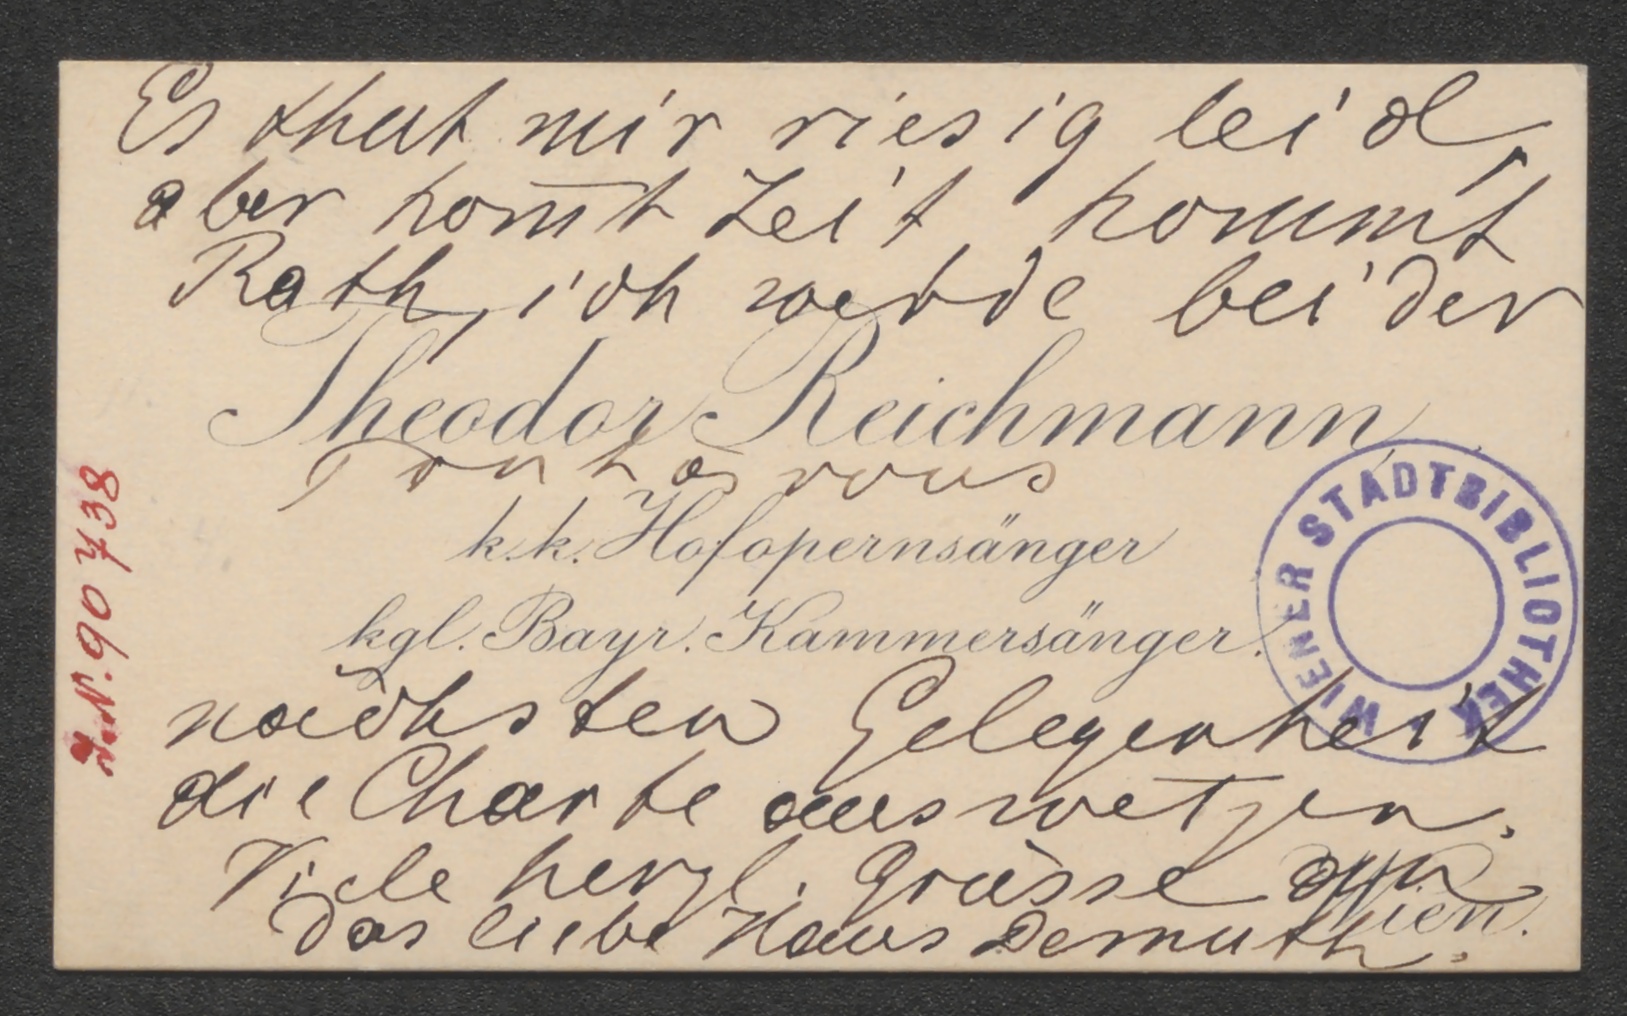 Es thut mir riesig leid,
aber kom̅t Zeit, kommt
Rath, ich werde bei der
Theodor Reichmann
Tout à vous
k. k. Hofopernsänger
kgl. Bayr. Kammersänger.
nächsten Gelegenheit
die Charte auswetzen.
Viele herzl. Grüsse an
Wien.
das liebe Haus Demuth.
I.N. 90738
WIENER STADTBIBLIOTHEK